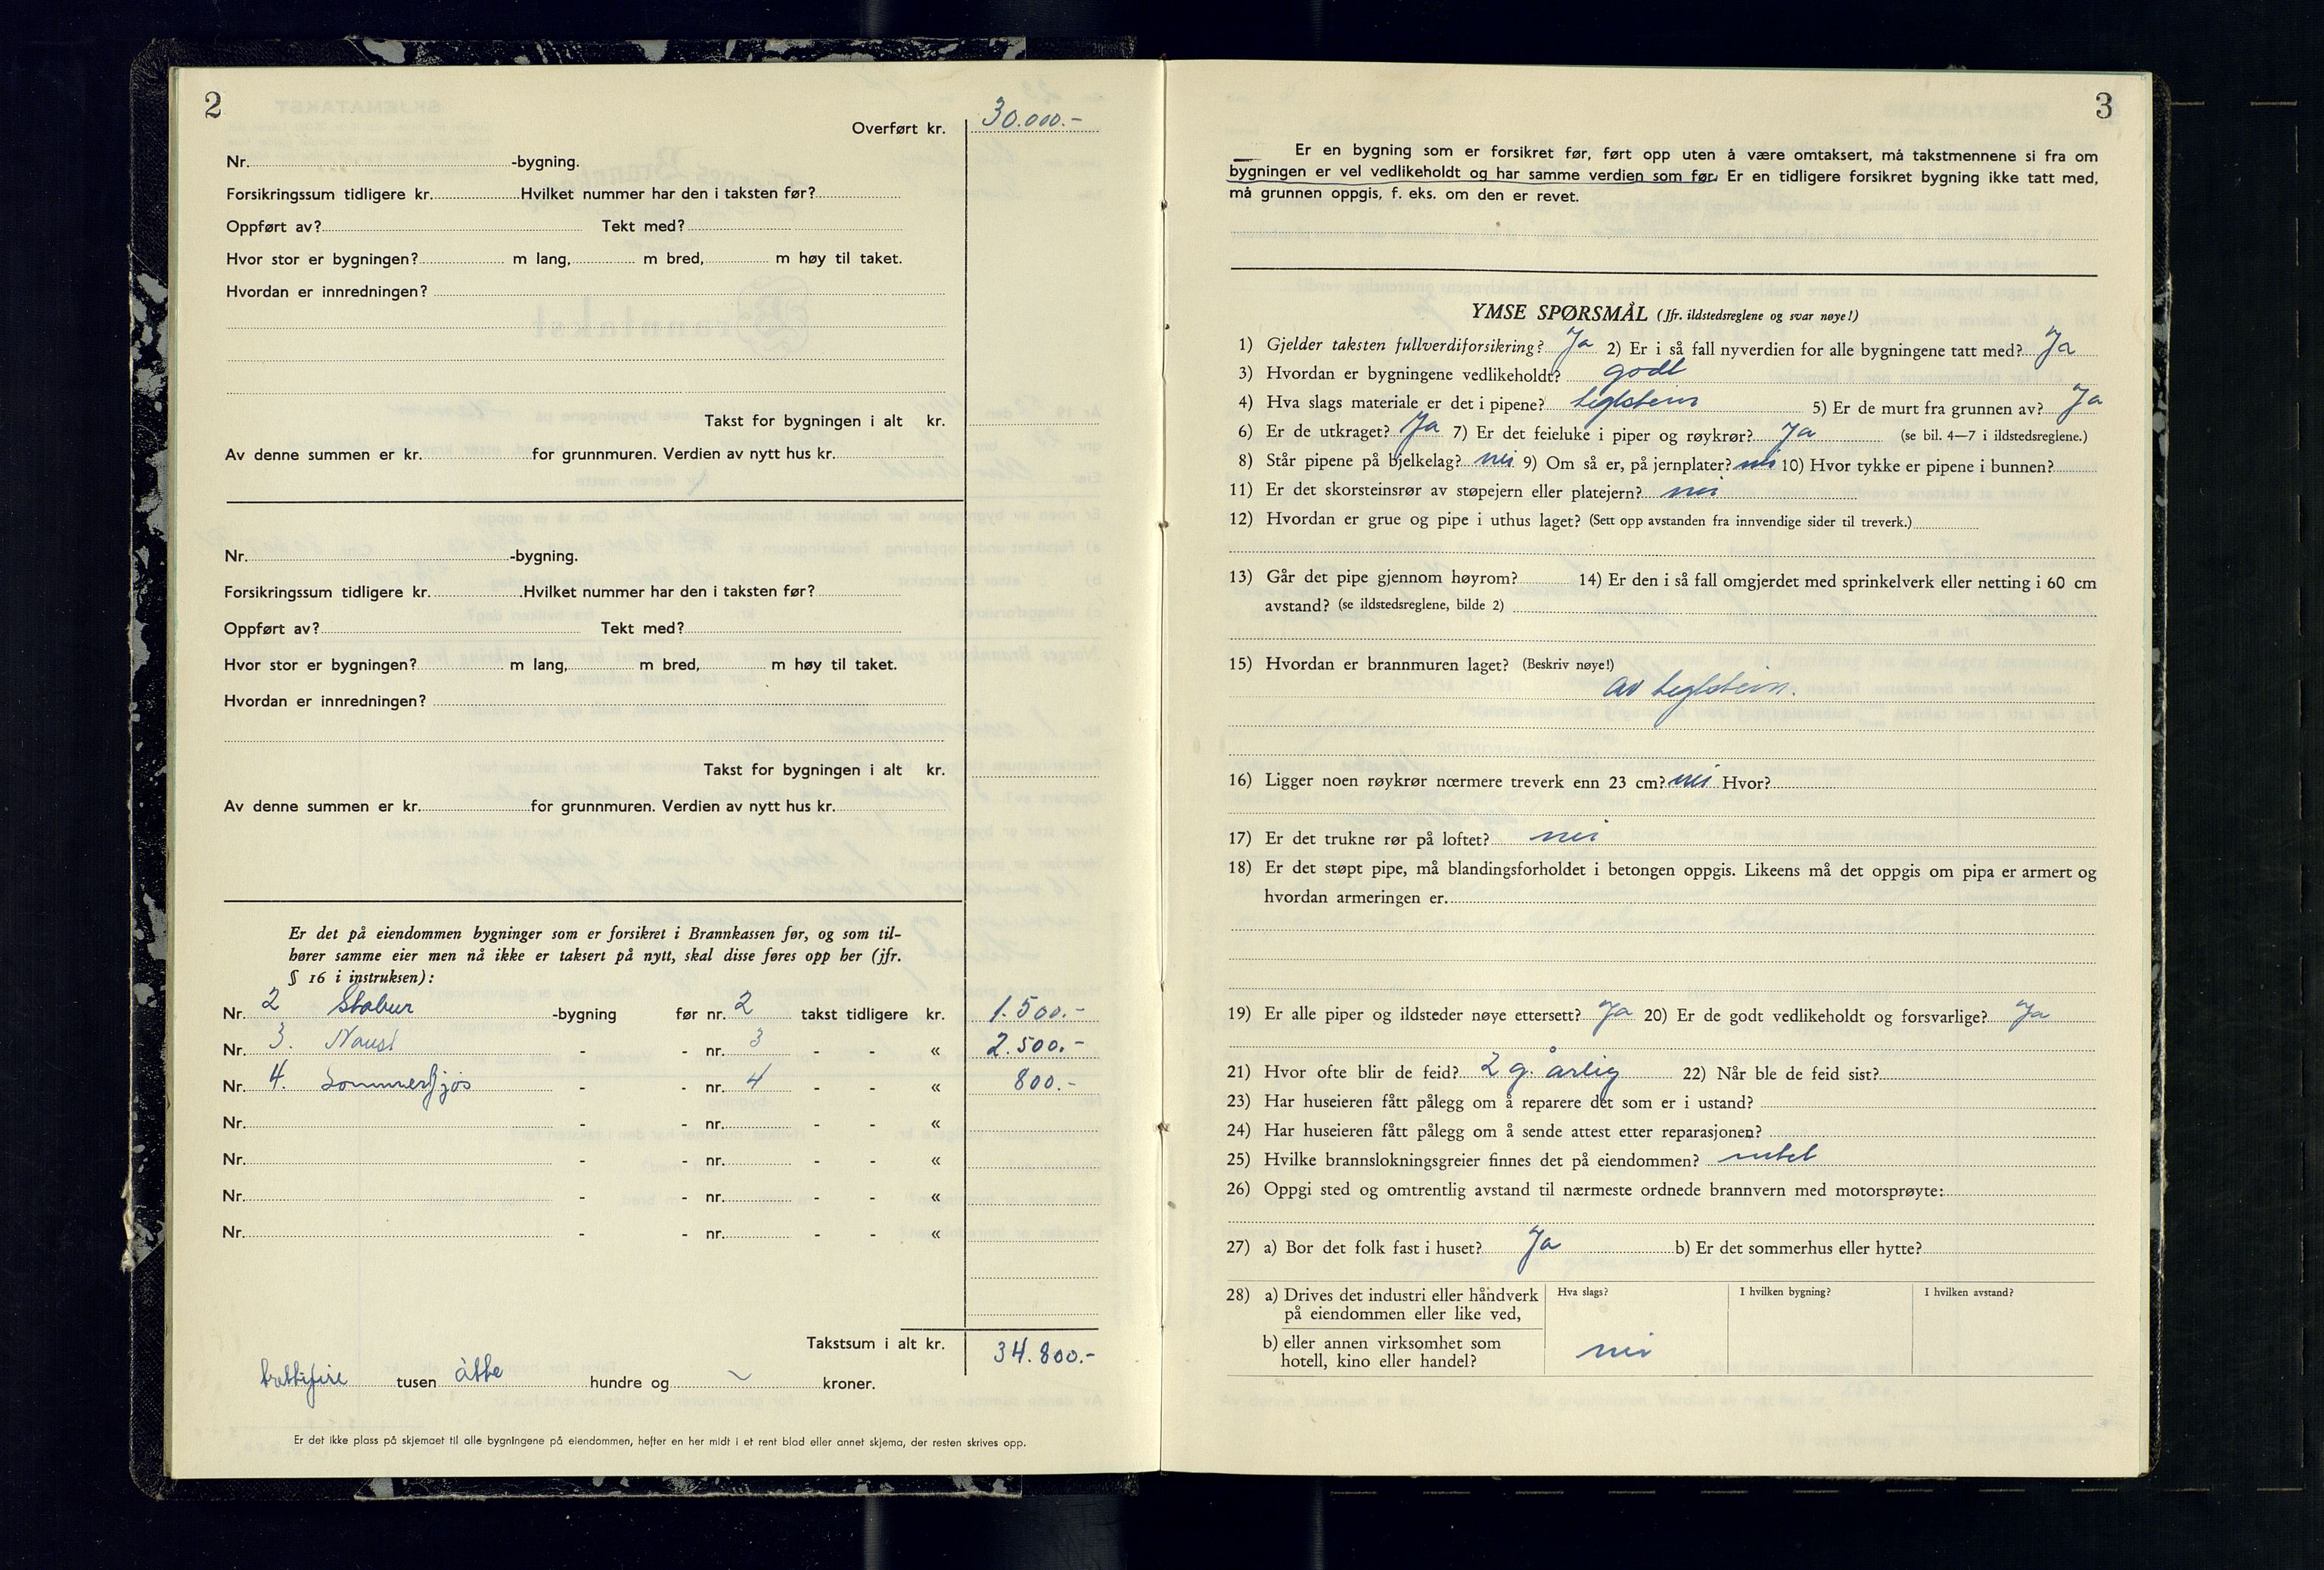 2
Overført kr. 30.000.-
Nr. -bygning.
Forsikringssum tidligere kr. Hvilket nummer har den i taksten før?
Oppført av? Tekt med?
Hvor stor er bygningen? m lang, m bred, m høy til taket.
Hvordan er innredningen?
Takst for bygningen i alt kr.
Av denne summen er kr. for grunnmuren. Verdien av nytt hus kr.
Nr. -bygning.
Forsikringssum tidligere kr. Hvilket nummer har den i taksten før?
Oppført av? Tekt med?
Hvor stor er bygningen? m lang, m bred, m høy til taket.
Hvordan er innredningen?
Takst for bygningen i alt kr.
Av denne summen er kr. for grunnmuren. Verdien av nytt hus kr.
Er det på eiendommen bygninger som er forsikret i Brannkassen før, og som til-
hører samme eier men nå ikke er taksert på nytt, skal disse føres opp her (jfr.
§ 16 i instruksen):
Nr. 2 Stabur -bygning før nr. 2 takst tidligere kr. 1.500.-
Nr. 3. Naust - - nr. 3 - - « 2.500.-
Nr. 4. Sommerfjøs - - nr. 4 - - « 800.-
Nr. - - nr. - - «
Nr. - - nr. - - «
Nr. - - nr. - - «
Nr. - - nr. - - «
Takstsum i alt kr. 34.800.-
trettifire tusen åtte hundre og - kroner.
Er det ikke plass på skjemaet til alle bygningene på eiendommen, hefter en her midt i et rent blad eller annet skjema, der resten skrives opp.
3
Er en bygning som er forsikret før, ført opp uten å være omtaksert, må takstmennene si fra om
bygningen er vel vedlikeholdt og har samme verdien som før. Er en tidligere forsikret bygning ikke tatt med,
må grunnen oppgis, f. eks. om den er revet.
YMSE SPØRSMÅL (Jfr. ildstedsreglene og svar nøye!)
1) Gjelder taksten fullverdiforsikring? Ja 2) Er i så fall nyverdien for alle bygningene tatt med? Ja
3) Hvordan er bygningene vedlikeholdt? godt
4) Hva slags materiale er det i pipene? teglstein 5) Er de murt fra grunnen av? Ja
6) Er de utkraget? Ja 7) Er det feieluke i piper og røykrør? Ja (se bil. 4—7 i ildstedsreglene.)
8) Står pipene på bjelkelag? nei 9) Om så er, på jernplater? nei 10) Hvor tykke er pipene i bunnen?
11) Er det skorsteinsrør av støpejern eller platejern? nei
12) Hvordan er grue og pipe i uthus laget? (Sett opp avstanden fra innvendige sider til treverk.)
13) Går det pipe gjennom høyrom? 14) Er den i så fall omgjerdet med sprinkelverk eller netting i 60 cm
avstand? (se ildstedsreglene, bilde 2)
15) Hvordan er brannmuren laget? (Beskriv nøye!)
av teglstein.
16) Ligger noen røykrør nærmere treverk enn 23 cm? nei Hvor?
17) Er det trukne rør på loftet? nei
18) Er det støpt pipe, må blandingsforholdet i betongen oppgis. Likeens må det oppgis om pipa er armert og
hvordan armeringen er.
19) Er alle piper og ildsteder nøye ettersett? Ja 20) Er de godt vedlikeholdt og forsvarlige? Ja
21) Hvor ofte blir de feid? 2 g. årlig 22) Når ble de feid sist?
23) Har huseieren fått pålegg om å reparere det som er i ustand?
24) Har huseieren fått pålegg om å sende attest etter reparasjonen?
25) Hvilke brannslokningsgreier finnes det på eiendommen? intet
26) Oppgi sted og omtrentlig avstand til nærmeste ordnede brannvern med motorsprøyte:
27) a) Bor det folk fast i huset? Ja b) Er det sommerhus eller hytte?
28) a) Drives det industri eller håndverk Hva slags? I hvilken bygning? I hvilken avstand?
på eiendommen eller like ved,
b) eller annen virksomhet som
hotell, kino eller handel? nei